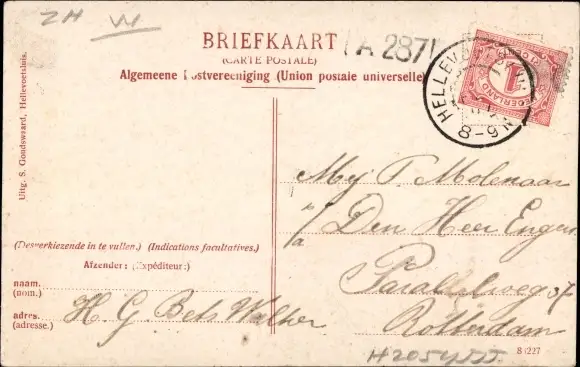 ZH W
BRIEFKAART
(CARTE POSTALE)
A 287
Algemeene Postvereeniging (Union postale universelle)
HELLEV
8-9 N
1
Uitg. S. Gondswaard, Hellevoetsluis.
Mej T. Molenaar
p/a Den Heer Engers
Parallelweg 37
Rotterdam
(Desverkiezende in te vullen.) (Indications facultatives.)
Afzender: (Expéditeur:)
naam.
(nom.)
adres.
(adresse.)
H. G. Bets Walther
8 227